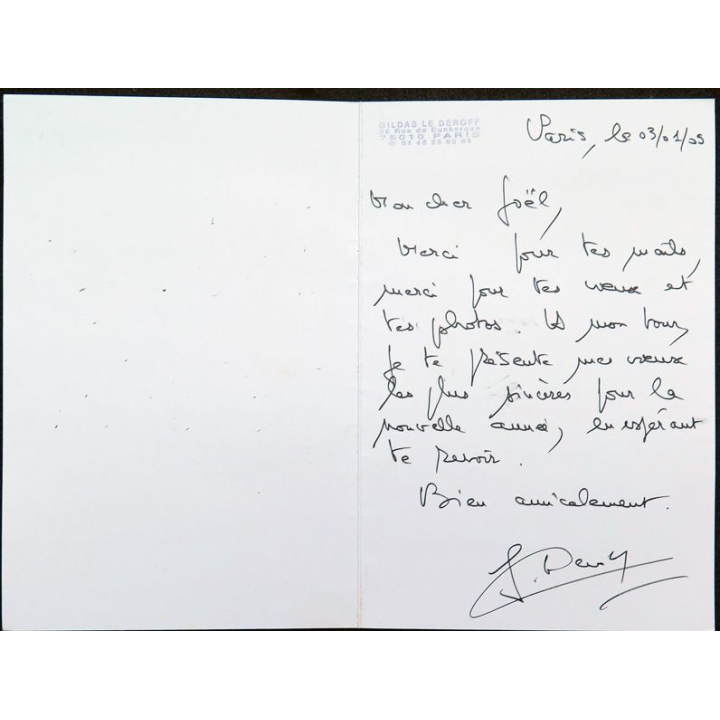 GILDAS LE DEROFF
Rue de Dunkerque
75010 PARIS
Paris, le 03/01/05
Mon cher Joël,
Merci pour tes mails,
merci pour tes voeux et
tes photos. A mon tour,
je te présente mes voeux
les plus sincères pour la
nouvelle année, en espérant
te revoir.
Bien amicalement.